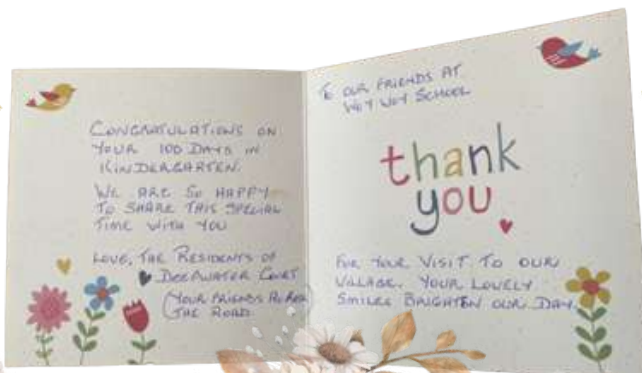 CONGRATULATIONS ON
YOUR 100 DAYS IN
KINDERGARTEN.
WE ARE SO HAPPY
TO SHARE THIS SPECIAL
TIME WITH YOU
LOVE, THE RESIDENTS OF
DEEPWATER COURT
(YOUR FRIENDS ACROSS
THE ROAD.
TO OUR FRIENDS AT
WOY WOY SCHOOL
thank
you
FOR YOUR VISIT TO OUR
VILLAGE. YOUR LOVELY
SMILES BRIGHTEN OUR DAY.